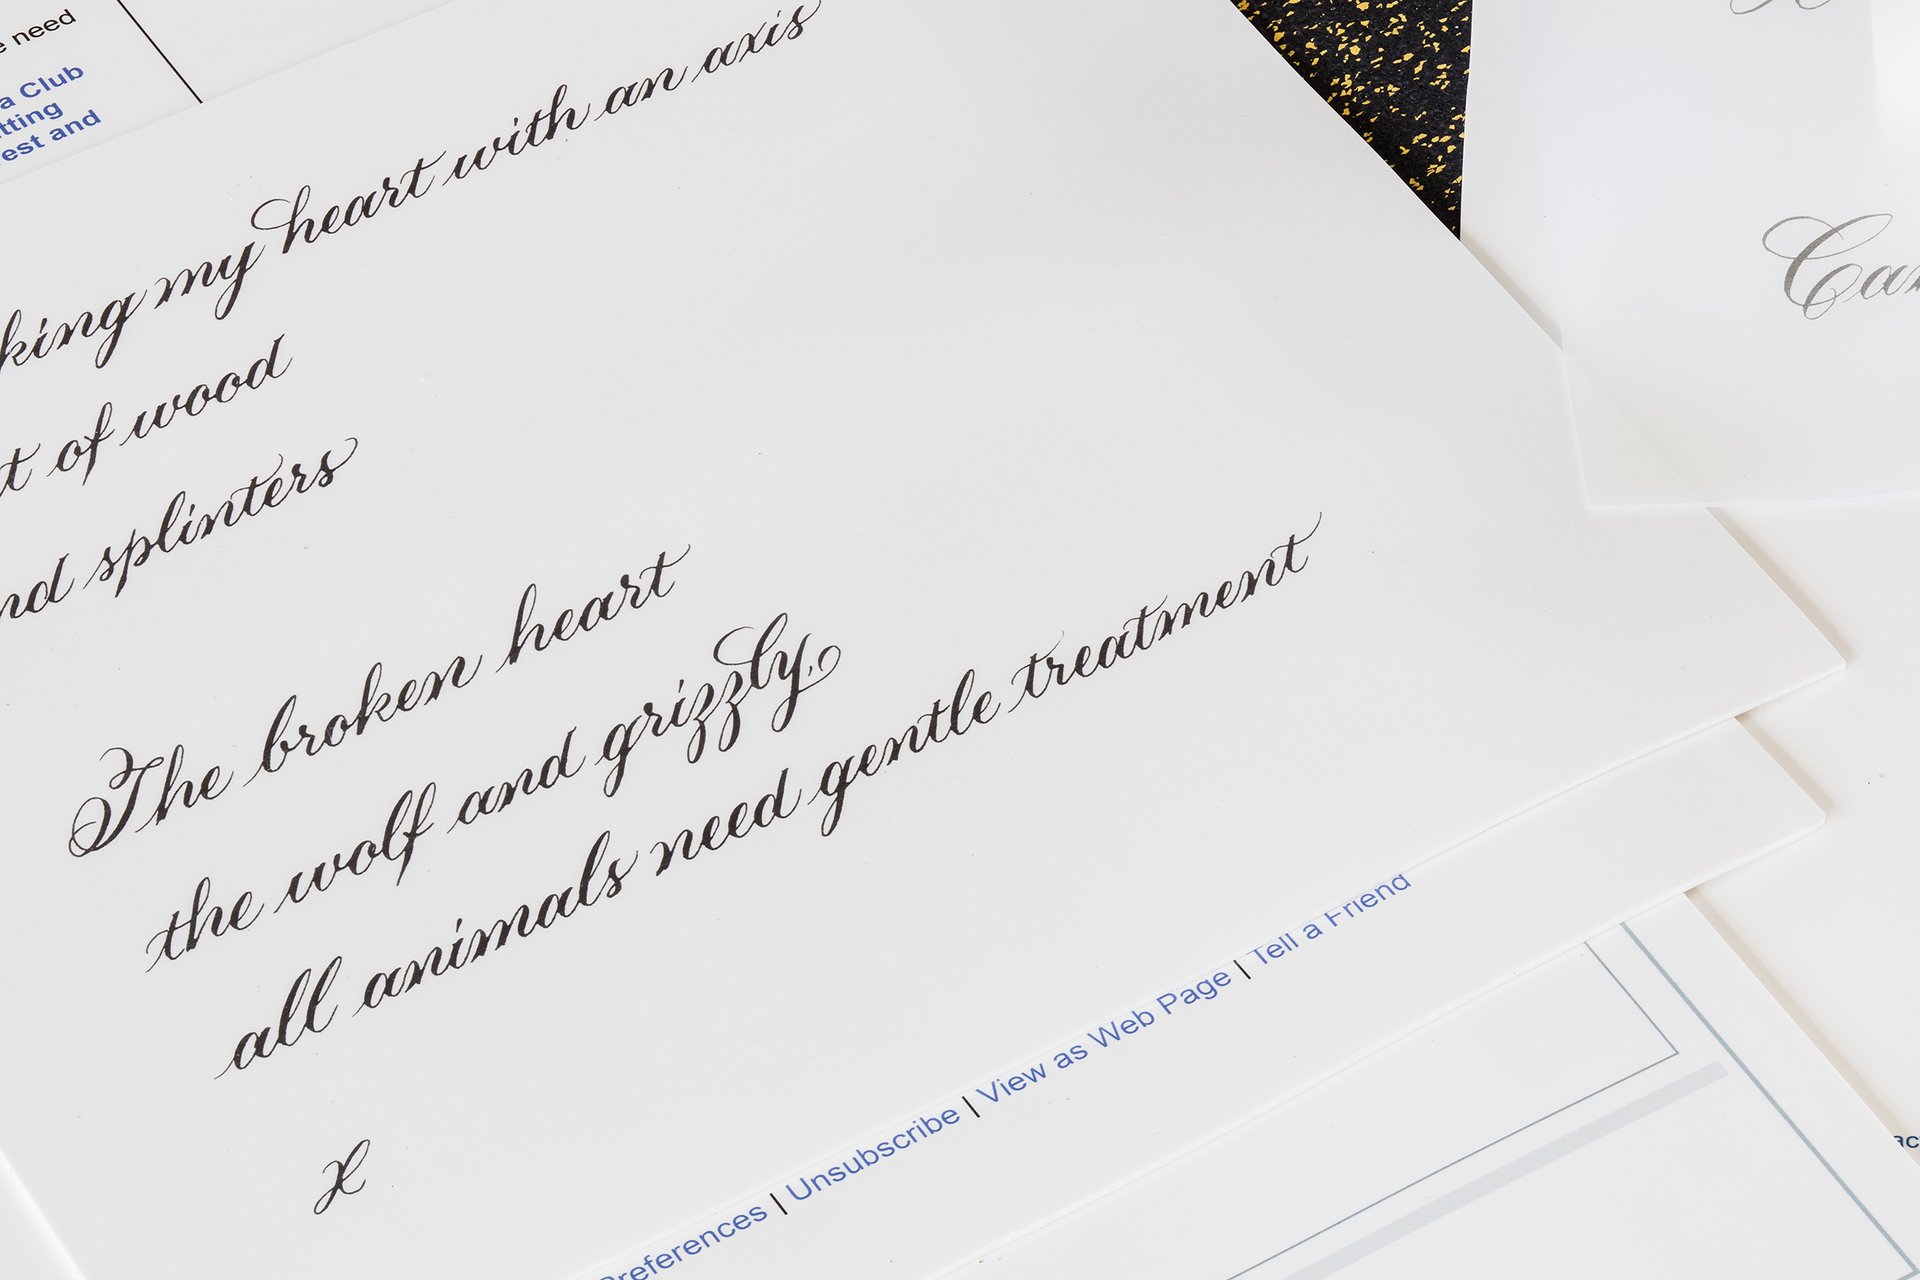 need
a Club
est and
king my heart with an axis
t of wood
nd splinters
The broken heart
the wolf and grizzly,
all animals need gentle treatment
x
Preferences | Unsubscribe | View as Web Page | Tell a Friend